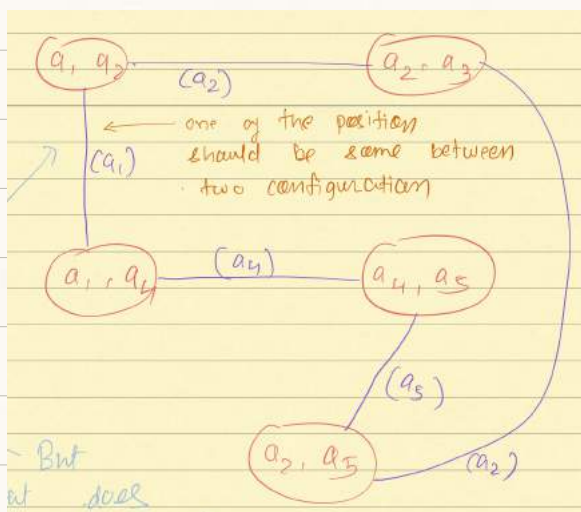 a₁ a₂
(a₂)
a₂, a₃
one of the position
should be same between
two configuration
(a₁)
a₁, a₄
(a₄)
a₄, a₅
(a₅)
a₂, a₅
(a₂)
But
at does